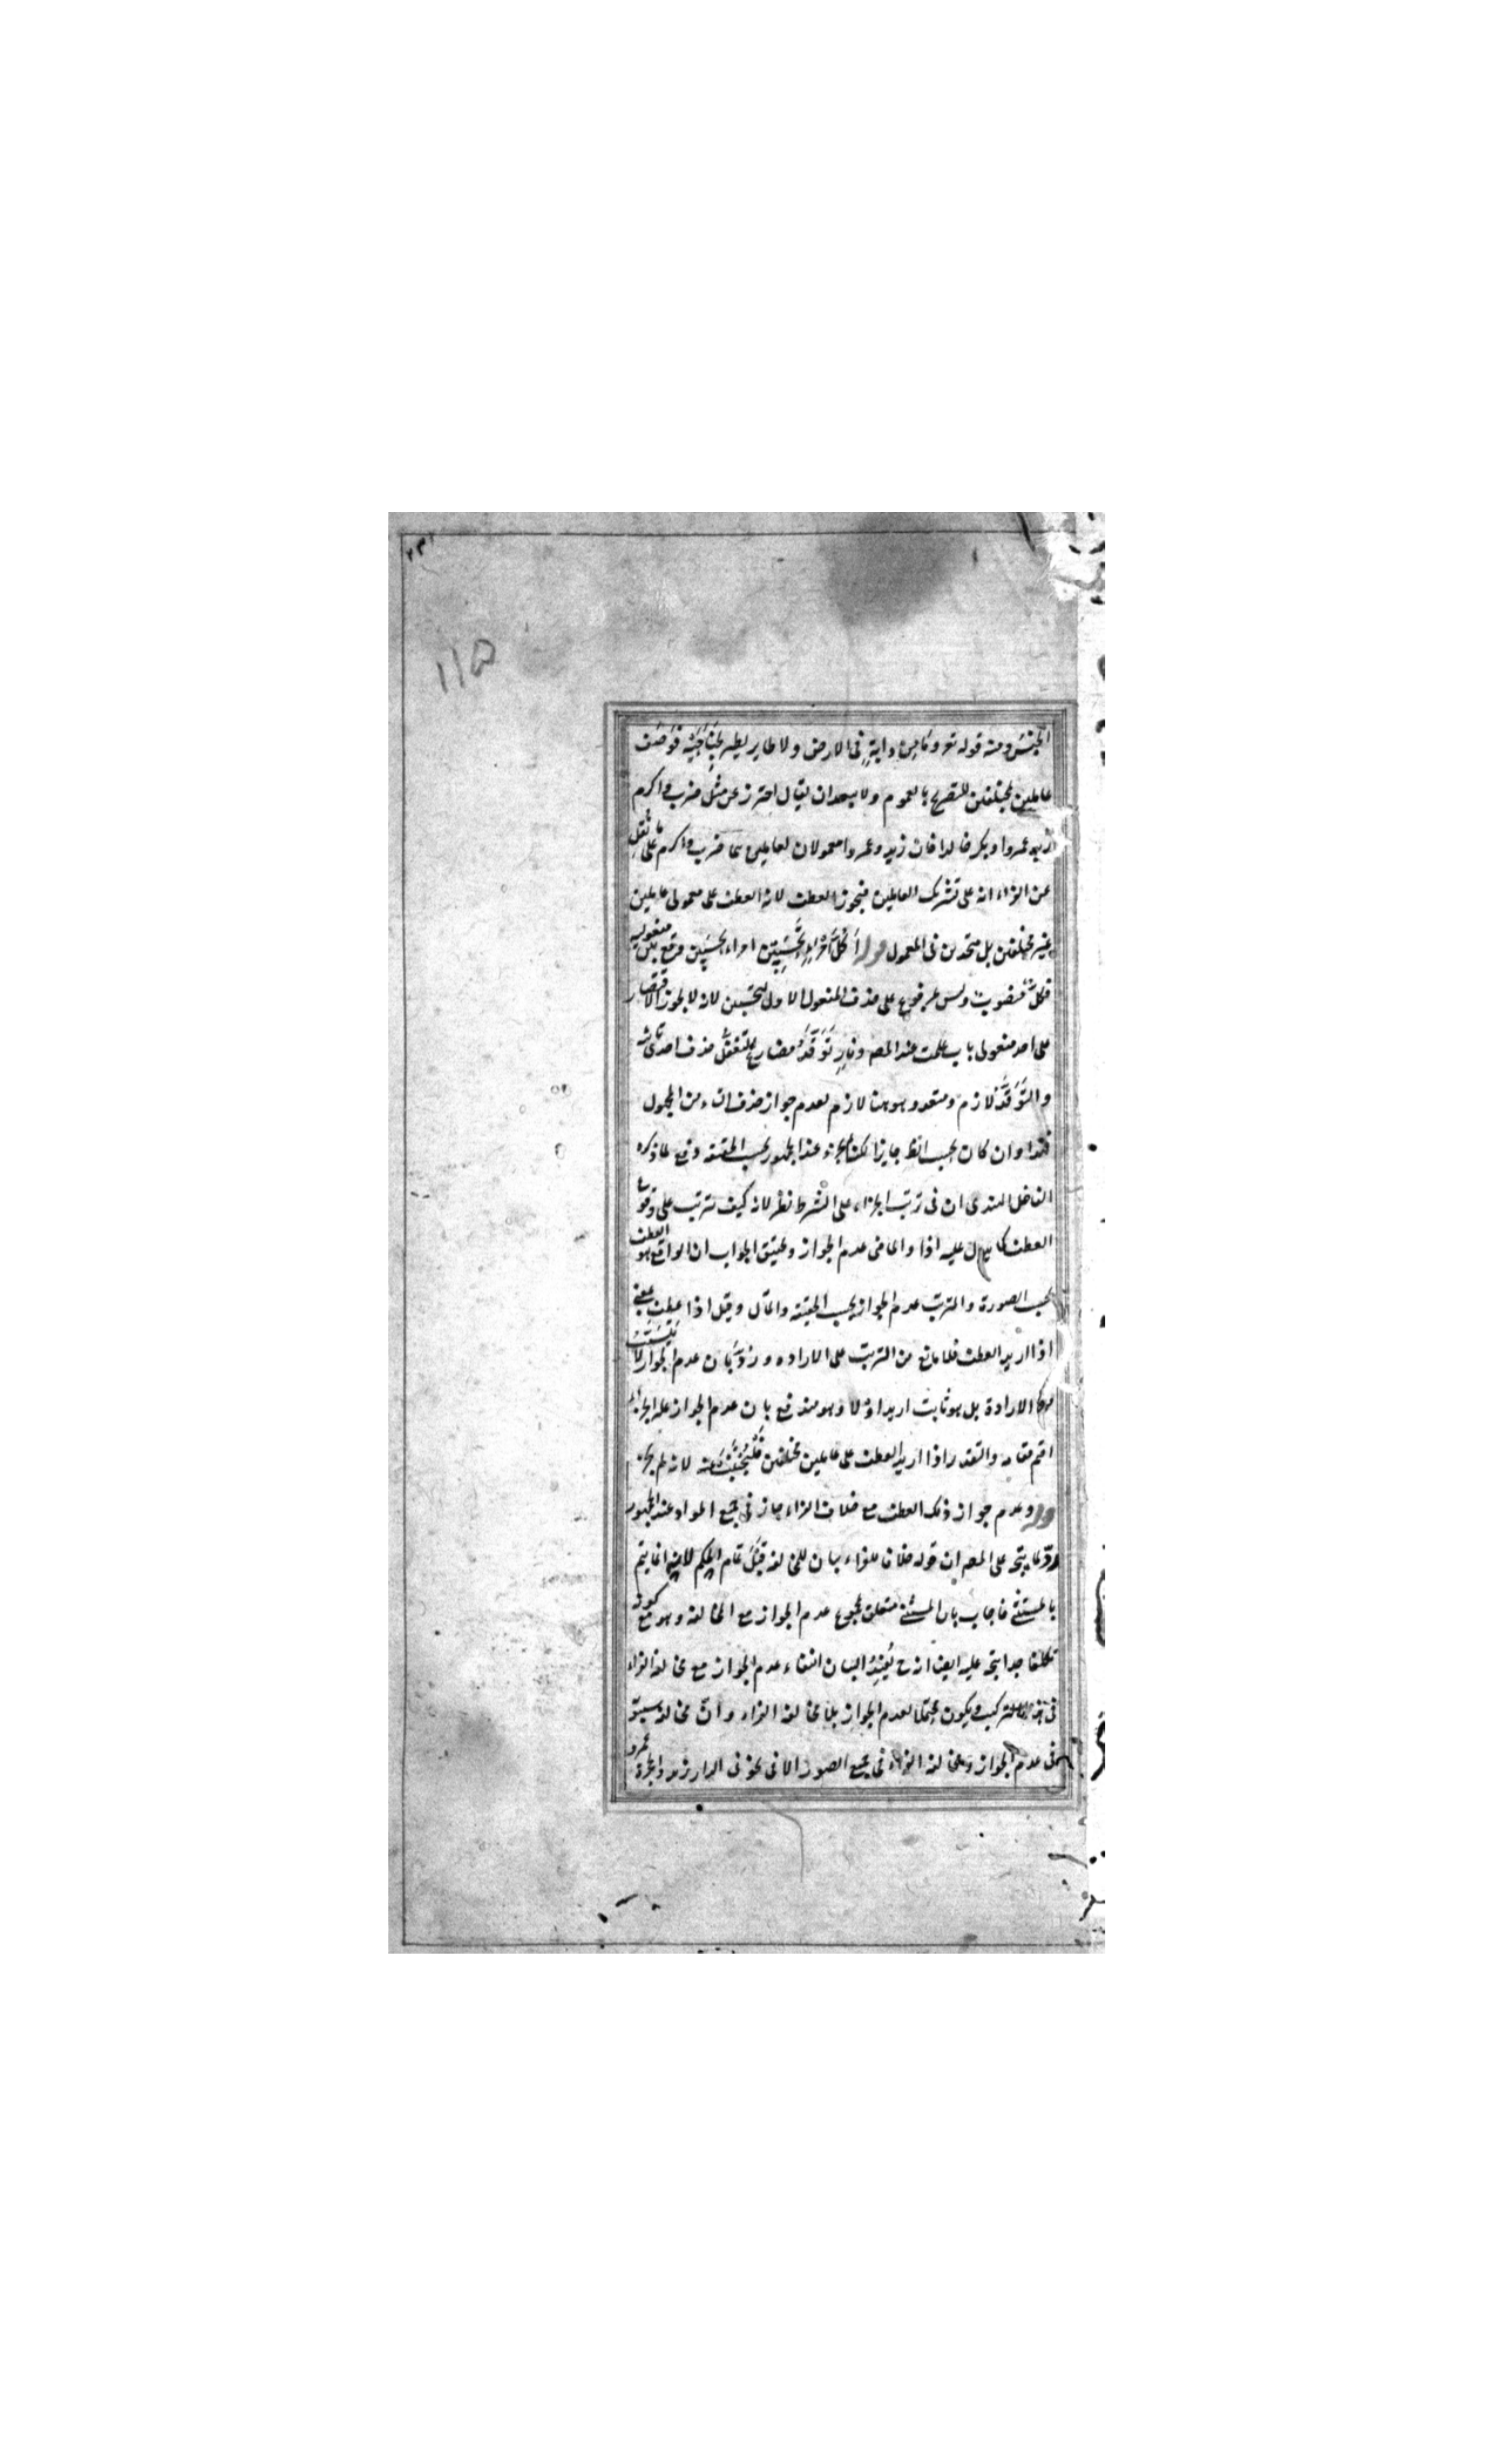 ١١٥
الجنس ومنه قوله تع وما من دابة في الارض ولا طاير يطير بجناحيه فوصف
عاملين بمختلفين للتصريح بالعموم ولا يبعد ان يقال احترز عن مثل ضرب واكرم
زيد عمروا وبكر خالدا فان زيد وعمروا معمولان لعاملين هما ضرب واكرم على ما نقل
عن الفراء انه على تشريك العاملين فيجوز العطف لانه العطف على معمولي عاملين
غير مختلفين بل متحدين في المعمول قوله اكل امرئ تحسبين امراء تحسبين وقع بين مفعوليه
فكل منصوب وليس مرفوع على حذف المفعول الاول لتحسبين لانه لا يجوز الاقتصار
على احد مفعولي باب علمت عند المصـ ونار توقد مضارع للتفعل حذف احدى تائيه
والتوقد لازم ومتعد وهو هنا لازم لعدم جواز حذف التاء من المجهول
فهذا وان كان بحسب الظ جايزا لكنه لم يجز عند الجمهور بحسب الحقيقة دفع لما ذكره
الفاضل الهندي ان في ترتب الجزاء على الشرط نظر لانه كيف يترتب على وقوع
العطف كما يدل عليه اذا والماضي عدم الجواز وتحقيق الجواب ان الواقع هو العطف
بحسب الصورة والمترتب عدم الجواز بحسب الحقيقة والمآل وقيل اذا عطف بمعنى
اذا اريد العطف فلا مانع من الترتب على الارادة ورد بان عدم الجواز لا يتسبب
الارادة بل هو ثابت اريد او لا وهو مندفع بان عدم الجواز علة الجزاء
اقيم مقامه والتقدير اذا اريد العطف على عاملين مختلفين فليجتنب عنه لانه لم يجز
قوله وعدم جواز ذلك العطف مع خلاف الفراء جار في جميع المواد عند الجمهور
رد لما يتجه على المصـ ان قوله خلافا للفراء بيان للمخالفة قبل تمام الحكم لانه انما يتم
بالمستثنى فاجاب بان المستثنى متعلق بمجموع عدم الجواز مع المخالفة وهو مع كونه
تكلفا جدا يتجه عليه ايضا انه ح يفيد البيان انتفاء عدم الجواز مع مخالفة الفراء
في هذا التركيب ويكون محتملا لعدم الجواز بلا مخالفة الفراء وان مخالفة سيبويه
في عدم الجواز ومخالفة الفراء في جميع الصور الا في نحو في الدار زيد والحجرة عمرو